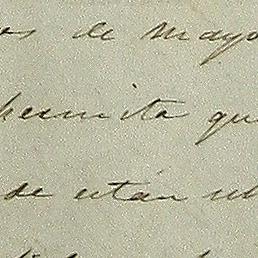 os de Mayo
permita qu
de están